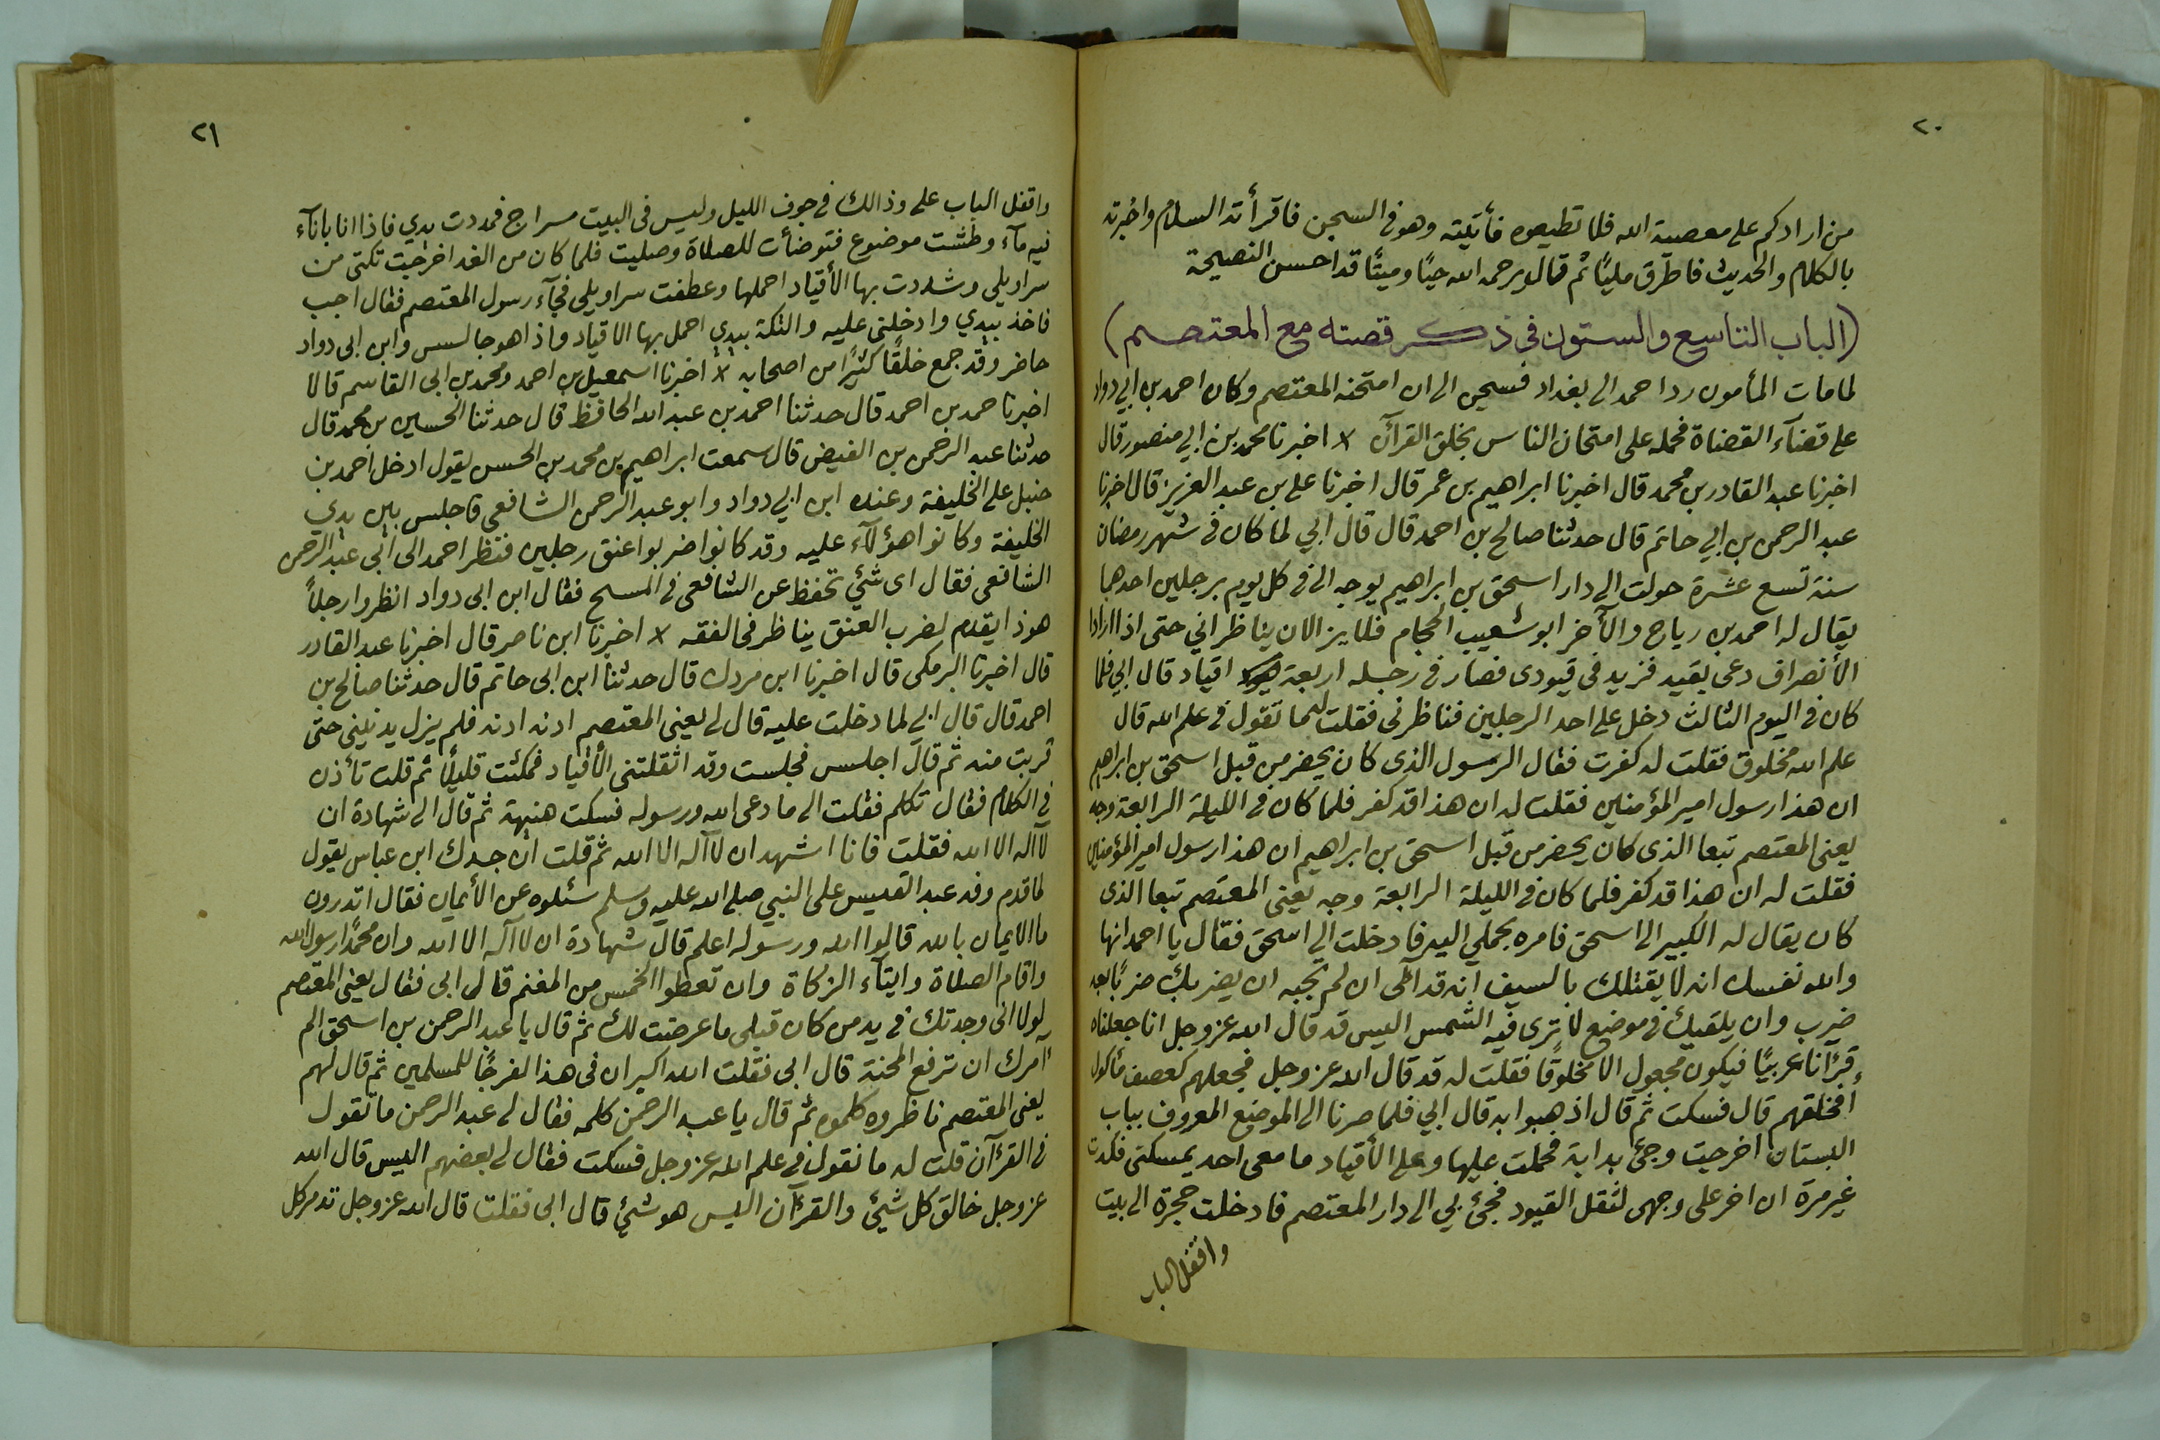 ٢٠
من ارادكم على معصية الله فلا تطيعوه فأتيته وهو فى السجن فاقرأته السلام واخبرته
بالكلام والحديث فاطرق مليًا ثم قال يرحمه الله حيًا وميتًا قد احسن النصيحة
(الباب التاسع والستون فى ذكر قصته مع المعتصم)
لما مات المأمون رد احمد الى بغداد فسجن الى ان امتحنه المعتصم وكان احمد بن ابي دواد
على قضآء القضاة فحمله على امتحان الناس بخلق القرآن ٪ اخبرنا محمد بن ابي منصور قال
اخبرنا عبد القادر بن محمد قال اخبرنا ابراهيم بن عمر قال اخبرنا على بن عبد العزيز قال اخبرنا
عبد الرحمن بن ابي حاتم قال حدثنا صالح بن احمد قال قال ابي لما كان فى شهر رمضان
سنة تسع عشرة حولت الى دار اسحق بن ابراهيم يوجه الى فى كل يوم برجلين احدهما
يقال له احمد بن رياح والأخر ابو شعيب الحجام فلا يزالان يناظرانى حتى اذا ارادا
الأنصراف دعى بقيد فزيد فى قيودى فصار فى رجله اربعة اقياد قال ابي فلما
كان فى اليوم الثالث دخل على احد الرجلين فناظرنى فقلت له ما تقول فى علم الله قال
علم الله مخلوق فقلت له كفرت فقال الرسول الذى كان يحضر من قبل اسحق بن ابراهيم
ان هذا رسول امير المؤمنين فقلت له ان هذا قد كفر فلما كان فى الليلة الرابعة وجه
يعنى المعتصم تبعا الذى كان يحضر من قبل اسحق بن ابراهيم ان هذا رسول امير المؤمنين
فقلت له ان هذا قد كفر فلما كان فى الليلة الرابعة وجه يعنى المعتصم تبعا الذى
كان يقال له الكبير الى اسحق فامره بحملي اليه فادخلت الى اسحق فقال يا احمد انها
والله نفسك انه لا يقتلك بالسيف انه قد آلى ان لم تجبه ان يضربك ضربًا بعد
ضرب وان يلقيك فى موضع لا ترى فيه الشمس اليس قد قال الله عز وجل انا جعلناه
قرءآنا عربيًا فيكون مجعول الا مخلوقًا فقلت له قد قال الله عز وجل فجعلهم كعصف مأكول
أفخلقهم قال فسكت ثم قال اذهبوا به قال ابي فلما صرنا الى الموضع المعروف بباب
البستان اخرجت وجئ بدابة فحملت عليها وعلى الأقياد ما معى احد يمسكنى فكدت
غير مرة ان اخر على وجهى لثقل القيود فجئ بي الى دار المعتصم فادخلت حجرة الى بيت
واقفل الباب
٢١
واقفل الباب على وذالك فى جوف الليل وليس فى البيت سراج فمددت يدي فاذا انا بانآء
فيه مآء وطشت موضوع فتوضأت للصلاة وصليت فلما كان من الغد اخرجت تكتى من
سراويلى وشددت بها الأقياد احملها وعطفت سراويلى فجآء رسول المعتصم فقال اجب
فاخذ بيدي وادخلنى عليه والتكة بيدي احمل بها الاقياد واذا هو جالس وابن ابى دواد
حاضر وقد جمع خلقًا كثيرًا من اصحابه ٪ اخبرنا اسمعيل بن احمد ومحمد بن ابى القاسم قالا
اخبرنا حمد بن احمد قال حدثنا احمد بن عبد الله الحافظ قال حدثنا الحسين بن محمد قال
حدثنا عبد الرحمن بن الفيض قال سمعت ابراهيم بن محمد بن الحسن يقول ادخل احمد بن
حنبل على الخليفة وعنده ابن ابي دواد وابو عبد الرحمن الشافعي فاجلس بين يدي
الخليفة وكانوا هؤلآء عليه وقد كانوا ضربوا عنق رجلين فنظر احمد الى ابى عبد الرحمن
الشافعى فقال اى شئي تحفظ عن الشافعى فى المسح فقال ابن ابى دواد انظروا رجلاً
هوذا يقدم لضرب العنق يناظر فى الفقه ٪ اخبرنا ابن ناصر قال اخبرنا عبد القادر
قال اخبرنا البرمكى قال اخبرنا ابن مردك قال حدثنا ابن ابى حاتم قال حدثنا صالح بن
احمد قال قال ابي لما دخلت عليه قال لى يعنى المعتصم ادنه ادنه فلم يزل يدنينى حتى
قربت منه ثم قال اجلس فجلست وقد اثقلتنى الأقياد فمكثت قليلاً ثم قلت تأذن
فى الكلام فقال تكلم فقلت الى ما دعى الله ورسوله فسكت هنيهة ثم قال الى شهادة ان
لآاله الا الله فقلت فانا اشهد ان لآاله الا الله ثم قلت ان جدك ابن عباس يقول
لما قدم وفد عبد القيس على النبي صلى الله عليه وسلم سئلوه عن الأيمان فقال اتدرون
ما الايمان بالله قالوا الله ورسوله اعلم قال شهادة ان لاآله الا الله وان محمدًا رسول الله
واقام الصلاة وايتآء الزكاة وان تعطوا الخمس من المغنم قال ابى فقال يعنى المعتصم
لولا انى وجدتك فى يد من كان قبلى ما عرضت لك ثم قال يا عبد الرحمن بن اسحق الم
أامرك ان ترفع المحنة قال ابى فقلت الله اكبر ان فى هذا لفرجًا للمسلمين ثم قال لهم
يعنى المعتصم ناظروه كلموه ثم قال يا عبد الرحمن كلمه فقال لى عبد الرحمن ما تقول
فى القرءآن قلت له ما تقول فى علم الله عز وجل فسكت فقال لى بعضهم اليس قال الله
عز وجل خالق كل شيئ والقرءآن اليس هو شئ قال ابى فقلت قال الله عز وجل تدمر كل